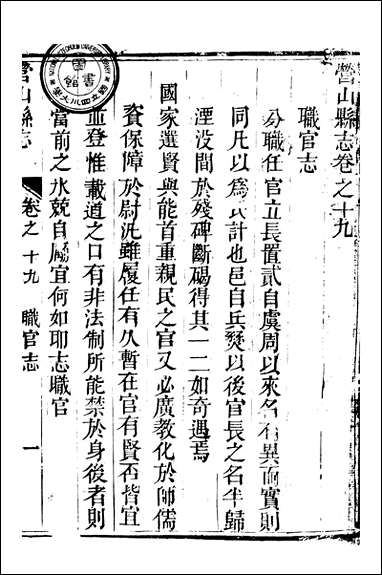 營山縣志卷之十九
職官志
分職任官立長置貳自虞周以來名有異而實則
同凡以為民計也邑自兵燹以後官長之名半歸
湮没間於殘碑斷碣得其一二如奇遇焉
國家選賢與能首重親民之官又必廣教化於師儒
資保障於尉汛雖履任有久暫在官有賢否皆宜
並登惟載道之口有非法制所能禁於身後者則
當前之氷兢自勵宜何如耶志職官
營山縣志
卷之十九 職官志 一
圖書館